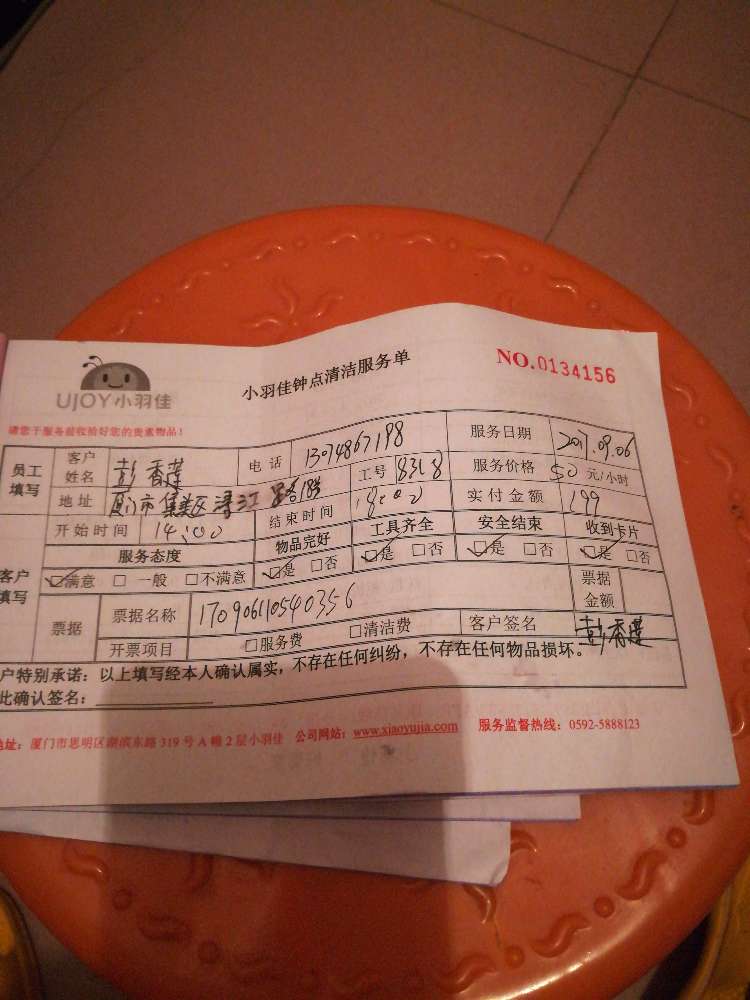 UJOY小羽佳
小羽佳钟点清洁服务单
NO.0134156
请您于服务前收拾好您的贵重物品!
员工填写 客户姓名 彭香莲 电话 13074867198 服务日期 2017.09.06
地址 厦门市集美区浔江 工号 8318 服务价格 50元/小时
开始时间 14:00 结束时间 18:00 实付金额 199
客户填写 服务态度 物品完好 工具齐全 安全结束 收到卡片
☑满意 □一般 □不满意 ☑是 □否 ☑是 □否 ☑是 □否 ☑是 □否
票据 票据名称 170906110540356 票据金额
开票项目 □服务费 □清洁费 客户签名 彭香莲
户特别承诺:以上填写经本人确认属实,不存在任何纠纷,不存在任何物品损坏。
此确认签名:
地址:厦门市思明区湖滨东路319号A幢2层小羽佳 公司网站:www.xiaoyujia.com 服务监督热线:0592-5888123